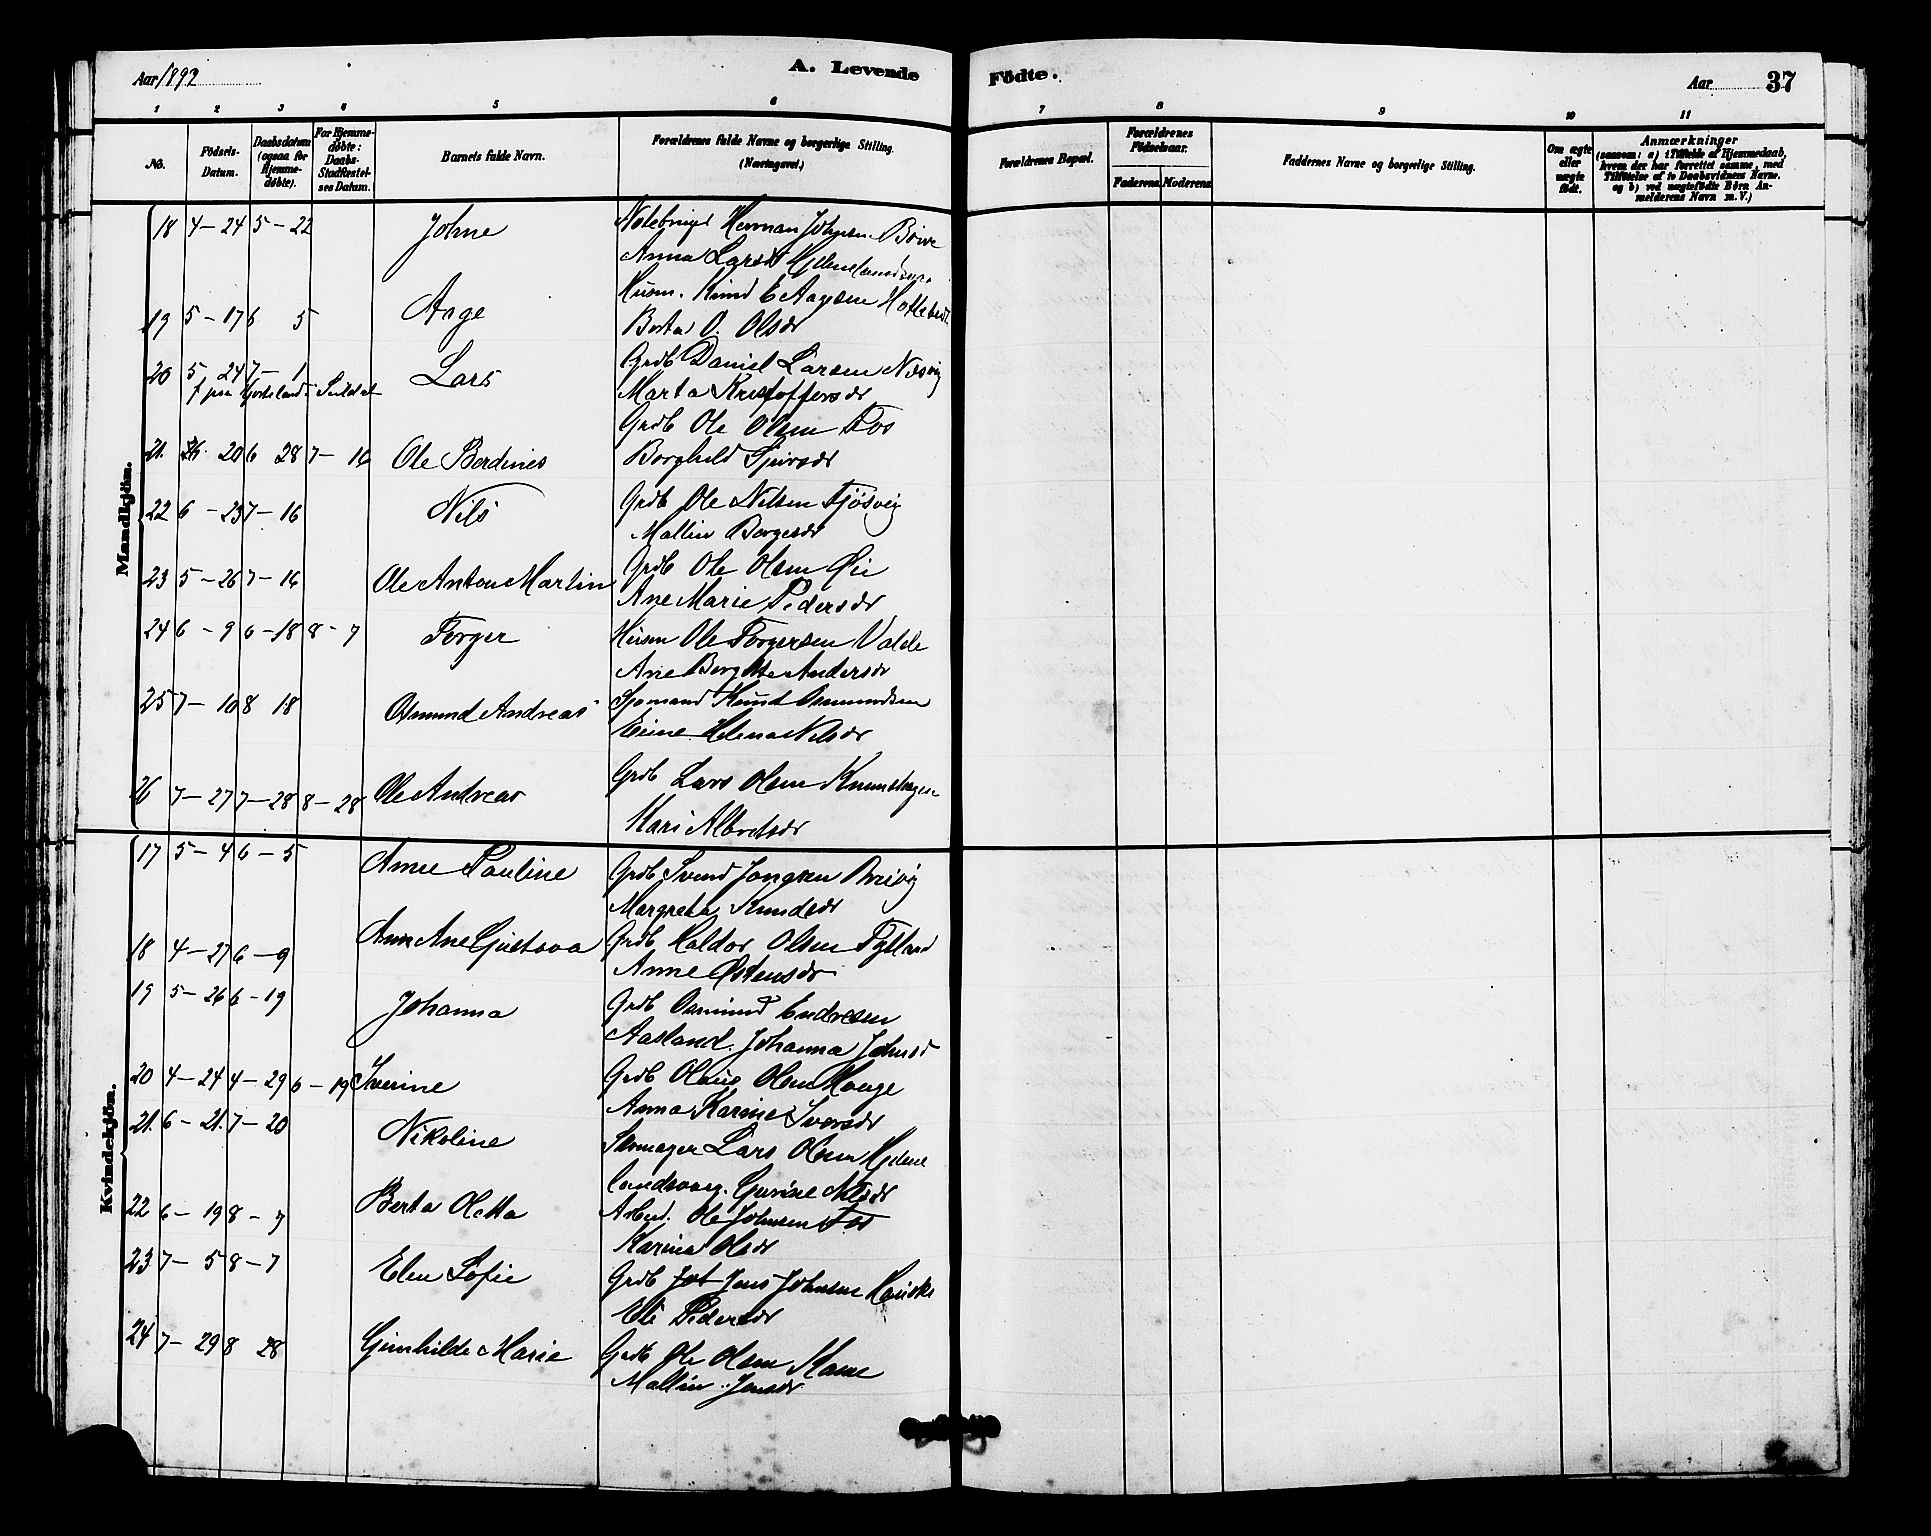 Aar 1892
A. Levende
Födte.
Aar 37
1 2 3 4 5 6 7 8 9 10 11
No.
Födsels-Datum.
Daabsdatum (ogsaa for Hjemme-döbte).
For Hjemme-döbte: Daabs-Stadfæstel-ses Datum.
Barnets fulde Navn.
Forældrenes fulde Navne og borgerlige Stilling. (Næringsvei.)
Forældrenes Bopæl.
Forældrenes Födselsaar.
Faderens. Moderens.
Faddernes Navne og borgerlige Stilling.
Om ægte eller uægte födt.
Anmærkninger
(saasom: a) i Tilfælde af Hjemmedaab, hvem der har forrettet samme, med Tilföielse af to Daabsvidners Navne, og b) ved uægtefödte Börn An-melderens Navn m. V.)
Mandkjön.
18 4-24 5-22 Johne Herman Johnsen
Anna Larsd
19 5-17 6 5 Aage Husm. Knud E Aagesen
Berta O. Olsdr
20 5 24 7-1 Lars Grdb Daniel Larsen Næsvig
Marta Kristoffersdr
21. 6. 20 6 28 7-16 Ole Berdines Grdb Ole Olsen Fos
Borghild
22 6-23 7-16 Nils Grdb Ole Nilsen Fjøsvig
Mallin Borgesdr
23 5-26 7-16 Ole Anton Martin Grdb Ole Olsen Øie
Ane Marie Pedersdr
24 6-9 6-18 8-7 Torger Husm Ole Torgersen Valde
Ane Bergitte Andersdr
25 7-10 8 18 Osmund Andreas Sjømand Knud Osmundsen
Helena Nilsdr
26 7-27 7-28 8-28 Ole Andreas Grdb Lars Olsen
Mari Albretsdr
Kvindekjön.
17 5-4 6-5 Anne Pauline Grdb Svend Jonasen Breivig
Margreta Knudsdr
18 4-27 6-9 Ane Gustava Grdb Haldor Olsen
Anne Østensdr
19 5-26 6-19 Johanna Grdb Osmund Endresen
Aasland. Johanna Johnsd
20 4-24 4-29 6-19 Iverine Grdb Olaus Olsen Hauge
Anna Karine Iversdr
21. 6-21. 7-20 Nikoline Skomager Lars Olsen Hjelme
landsvaag. Gurine Nilsdr
22 6-19 8-7 Berta Oletta Arbed. Ole Johnsen Fos
Karina Olsdr
23 7-5 8-7 Elen Sofie Grdb Jens Johnsen
Eli Pedersdr
24 7-29 8 28 Gunhilde Marie Grdb Ole Olsen
Mallin Jensdr